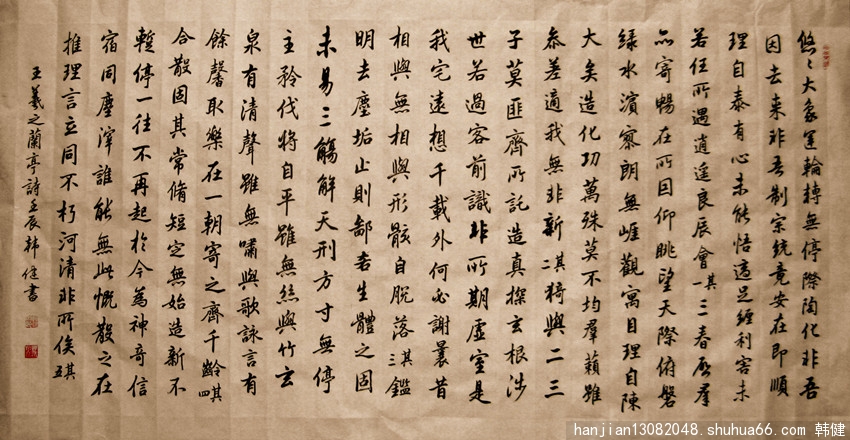 悠〻大象運輪轉無停際陶化非吾
因去来非吾制宗統竟安在即順
理自泰有心未能悟適足纏利害未
若任所遇逍遥良辰會其一三春啟羣
品寄暢在所因仰眺望天際俯磐
绿水濱寥朗無崖觀寓目理自陳
大矣造化功萬殊莫不均羣籟雖
参差適我無非新其二猗與二三
子莫匪齊所託造真探玄根涉
世若過客前識非所期虚室是
我宅遠想千載外何必謝曩昔
相與無相與形骸自脱落其三鑑
明去塵垢止則鄙吝生體之固
未易三觴解天刑方寸無停
主矜伐將自平雖無絲與竹玄
泉有清聲雖無嘯與歌詠言有
餘馨取樂在一朝寄之齊千齡其四
合散固其常脩短定無始造新不
暫停一往不再起於今為神奇信
宿同塵滓誰能無此慨散之在
推理言立同不朽河清非所俟其五
王羲之蘭亭詩壬辰韩健書
hanjian13082048.shuhua66.com 韩健